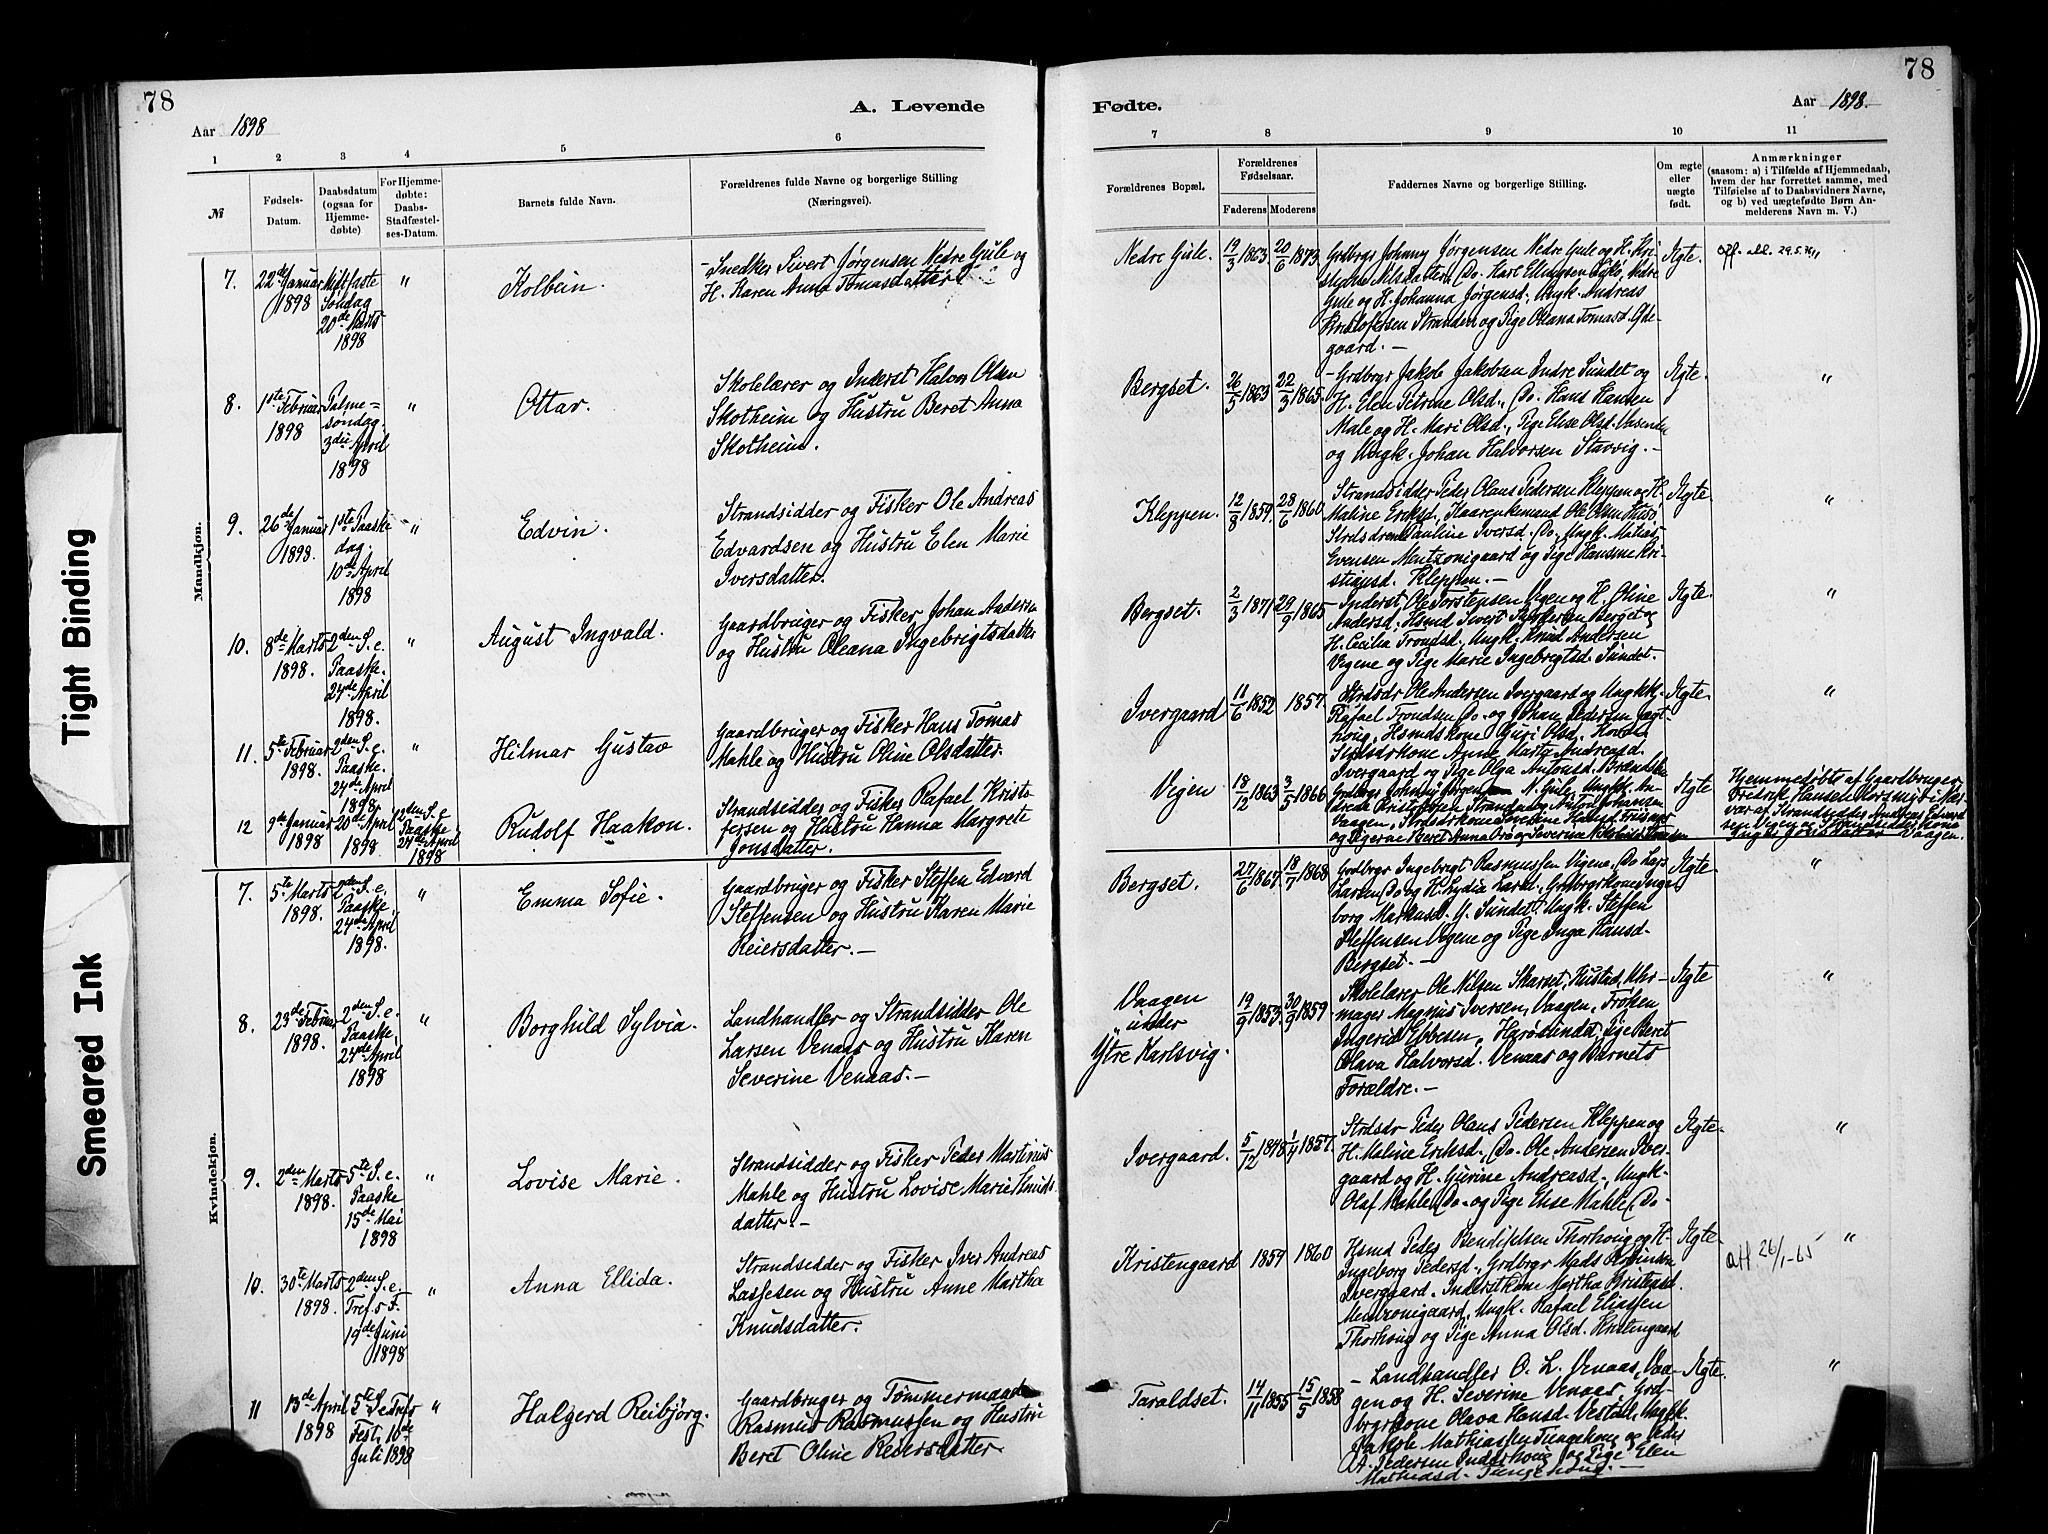 78
A. Levende
Aar 1898
1 2 3 4 5 6
№
Fødsels-Datum.
Daabsdatum (ogsaa for Hjemmedøbte)
For Hjemmedøbte: Daabs-Stadfæstelses-Datum.
Barnets fulde Navn.
Forældrenes fulde Navne og borgerlige Stilling
(Næringsvei).
Mandkjøn.
7.
22de Januar
1898
Midfaste
Søndag
20de Marts
1898
"
Kolbein.
Snedker Sivert Jørgensen Nedre Gule og
H. Karen Anna Tomasdatter
8.
1ste Februar
1898
Palme=
søndag.
3die April
1898
"
Ottar.
Skolelærer og Inderst Halvor Olsen
Skotheim og Hustru Beret Anna
Skotheim.
9.
26de Januar
1898.
1ste Paaske
dag,
10de April
1898
"
Edvin.
Strandsidder og Fisker Ole Andreas
Edvardsen og Hustru Elen Marie
Iversdatter.
10.
8de Marts
1898.
2den S. e.
Paaske.
24de April
1898.
"
August Ingvald.
Gaardbruger og Fisker Johan Andersen
og Hustru Oleana Ingebrigtsdatter
11.
5te Februar
1898.
2den S. e.
Paaske.
24de April
1898.
"
Hilmar Gustav
Gaardbruger og Fisker Hans Tomas
Mahle og Hustru Oline Olsdatter.
12
9de Januar
1898
20de April
1898.
2den S. e
Paaske
24de April
1898
Rudolf Haakon.
Strandsidder og Fisker Rafael Kristo
fersen og Hustru Hanna Margrete
Jonsdatter.
Kvindekjøn.
7.
5te Marts
1898.
2den S. e.
Paaske,
24de April
1898.
"
Emma Sofie.
Gaardbruger og Fisker Steffen Edvard
Steffensen og Hustru Karen Marie
Reiersdatter.—
8.
23de Februar
1898.
2den S. e.
Paaske
24de April
1898
"
Borghild Sylvia.
Landhandler og Strandsidder Ole
Larsen Venaas og Hustru Karen
Severine Venaas.—
9.
2den Marts
1898.
5te S. e.
Paaske
15de Mai
1898
"
Lovise Marie.
Strandsidder og Fisker Peder Martinus
Mahle og Hustru Lovise Marie Knuds
datter.—
10.
30te Marts
1898.
2den S. e.
Tref. s F.
19de Juni
1898
"
Anna Ellida.
Strandsidder og Fisker Iver Andreas
Lassesen og Hustru Anne Martha
Knudsdatter.
11
13de April
1898
5te S. e Tref s
Fest, 10de
Juli 1898
"
Halgerd Reibjørg.
Gaardbruger og Tømmermand
Rasmus Rasmussen og Hustru
Beret Oline Reiersdatter.
78
Fødte.
Aar 1898.
7 8 9 10 11
Forældrenes Bopæl.
Forældrenes Fødselsaar.
Faderens Moderens
Faddernes Navne og Stilling.
Om ægte eller uægte født.
Anmærkninger
(saasom: a) i Tilfælde af Hjemmedaab,
hvem der har forrettet samme, med
Tilføielse af to Daabsvidners Navne,
og b) ved uægtefødte Børn Anmelderens Navn m. V.)
Nedre Gule.
19/3 1863.
20/6 1873.
Grdbrgr Johnny Jørgensen Nedre Gule og H. Kri-
Gule og H. Johanna Jørgensd., Ungk. Andreas
Kristofersen Stranden og Pige Oliana Tomasd.
gaard.—
Ægte.
Bergset.
26/5 1863
22/3 1865.
Grdbrgr Jakob Jakobsen Indre Sundet og
H. Elen Petrine Olsd., Do. Hans Hansen
Male og H. Mari Olsd., Pige Elise Olsd.
og Ungk. Johan Halvorsen Stavvig.—
Ægte.
"
Kleppen.
12/8 1859.
28/6 1860
Strandsidder Peder Olaus Pedersen Kleppen og H.
Maline Eriksd.,
Pauline Iversd. Do. Ungk. Matias
Evensen Mentzonigaard og Pige Hansine Kri-
stiansd. Kleppen.—
Ægte.
"
Bergset.
2/3 1871.
29/9 1865
Inderst Ole Torstensen Vigen og H. Oline
Andersd., Hsmd Sivert Berget og
H. Cecilia Trondsd., Ungk. Knud Andersen
Vigene og Pige Marie Ingebrigtsd. Sundet.
Ægte.
"
Ivergaard
11/6 1852
1857.
Strdsdr Ole Andersen Ivergaard og Ungk.
Rafael Trondsen Do. og Johan Pedersen
houg, Hsmdskone Guri Olsd.
Strdsdrkone Anne Marta Andreasd.
Ivergaard og Pige Olga Antonsd.
Ægte.
"
Vigen
18/12 1863
3/5 1866
Ægte
Hjemmedøbt af Gaardbruger
Fredrik Hansen
Vaagen.
Bergset.
27/6 1867.
18/7 1868
Grdbrgr Ingebrigt Rasmussen Vigene, Do Lars
Larsen Do og H. Lydia Larsd., Grdbrgrkone Inge
borg Markusd. Y. Sundet, Ungk. Steffen
Steffensen Vigene og Pige Inga Hansd.
Bergset.—
Ægte.
"
Vaagen
under
Ytre Karlsvig.
19/9 1853.
30/9 1859
Skolelærer Ole Nilsen Skarset, Hustad, Uhr-
mager Magnus Iversen, Vaagen, Frøken
Ingerid Ebbesen, Pige Beret
Olava Halvorsd. Venaas og Barnets
Forældre.—
Ægte
"
Ivergaard.
5/12 1848
1/4 1857.
Strdsdr Peder Olaus Pedersen Kleppen og
H. Maline Eriksd., Do. Ole Andersen Iver-
gaard og H. Gurine Andreasd., Ungk.
Olaf Mahle, Do. og Pige Elise Mahle, Do
Ægte.
"
Kristengaard
1859
1860
Hsmd Peder Bendiksen Thorhoug og H.
Ingeborg Pedersd., Grdbrgr Mads
Ivergaard, Inderstkone Martha
Mentzonigaard, Ungk. Rafael Eliassen
Thorhoug og Pige Anna Olsd. Kristengaard
Ægte.
att 26/1-65
"
Taraldset.
14/11 1855
15/5 1858
Landhandler O. L. Venaas, Vaa-
gen og H. Severine Venaas, Grd-
brgrkone Olava Hansd. Vestad, Ungk.
Jakob Mathiassen Tungehoug og Peder
A. Pedersen og Pige Elen
Mathiasd. Tungehoug.—
Ægte.
"
Tight Binding
Smeared Ink